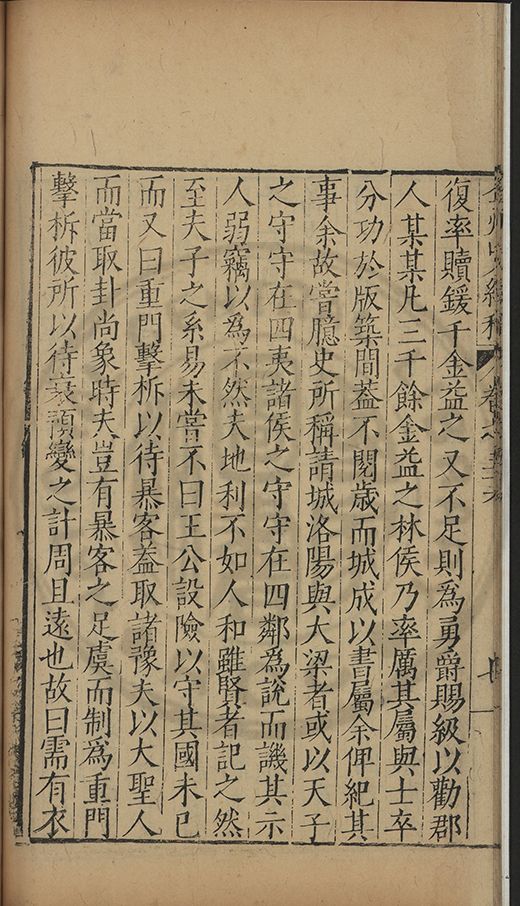 復率贖鍰千金益之又不足則為勇爵賜級以勸郡
人某某凡三千餘金益之林侯乃率厲其屬與士卒
分功於版築間葢不閱歳而城成以書屬余俾紀其
事余故嘗臆史所稱請城洛陽與大梁者或以天子
之守守在四夷諸侯之守守在四鄰為說而譏其示
人弱竊以為不然夫地利不如人和雖賢者記之然
至夫子之系易未嘗不曰王公設險以守其國未已
而又曰重門擊柝以待暴客葢取諸豫夫以大聖人
而當取卦尚象時夫豈有暴客之足虞而制為重門
擊柝彼所以待衰預變之計周且遠也故曰需有衣